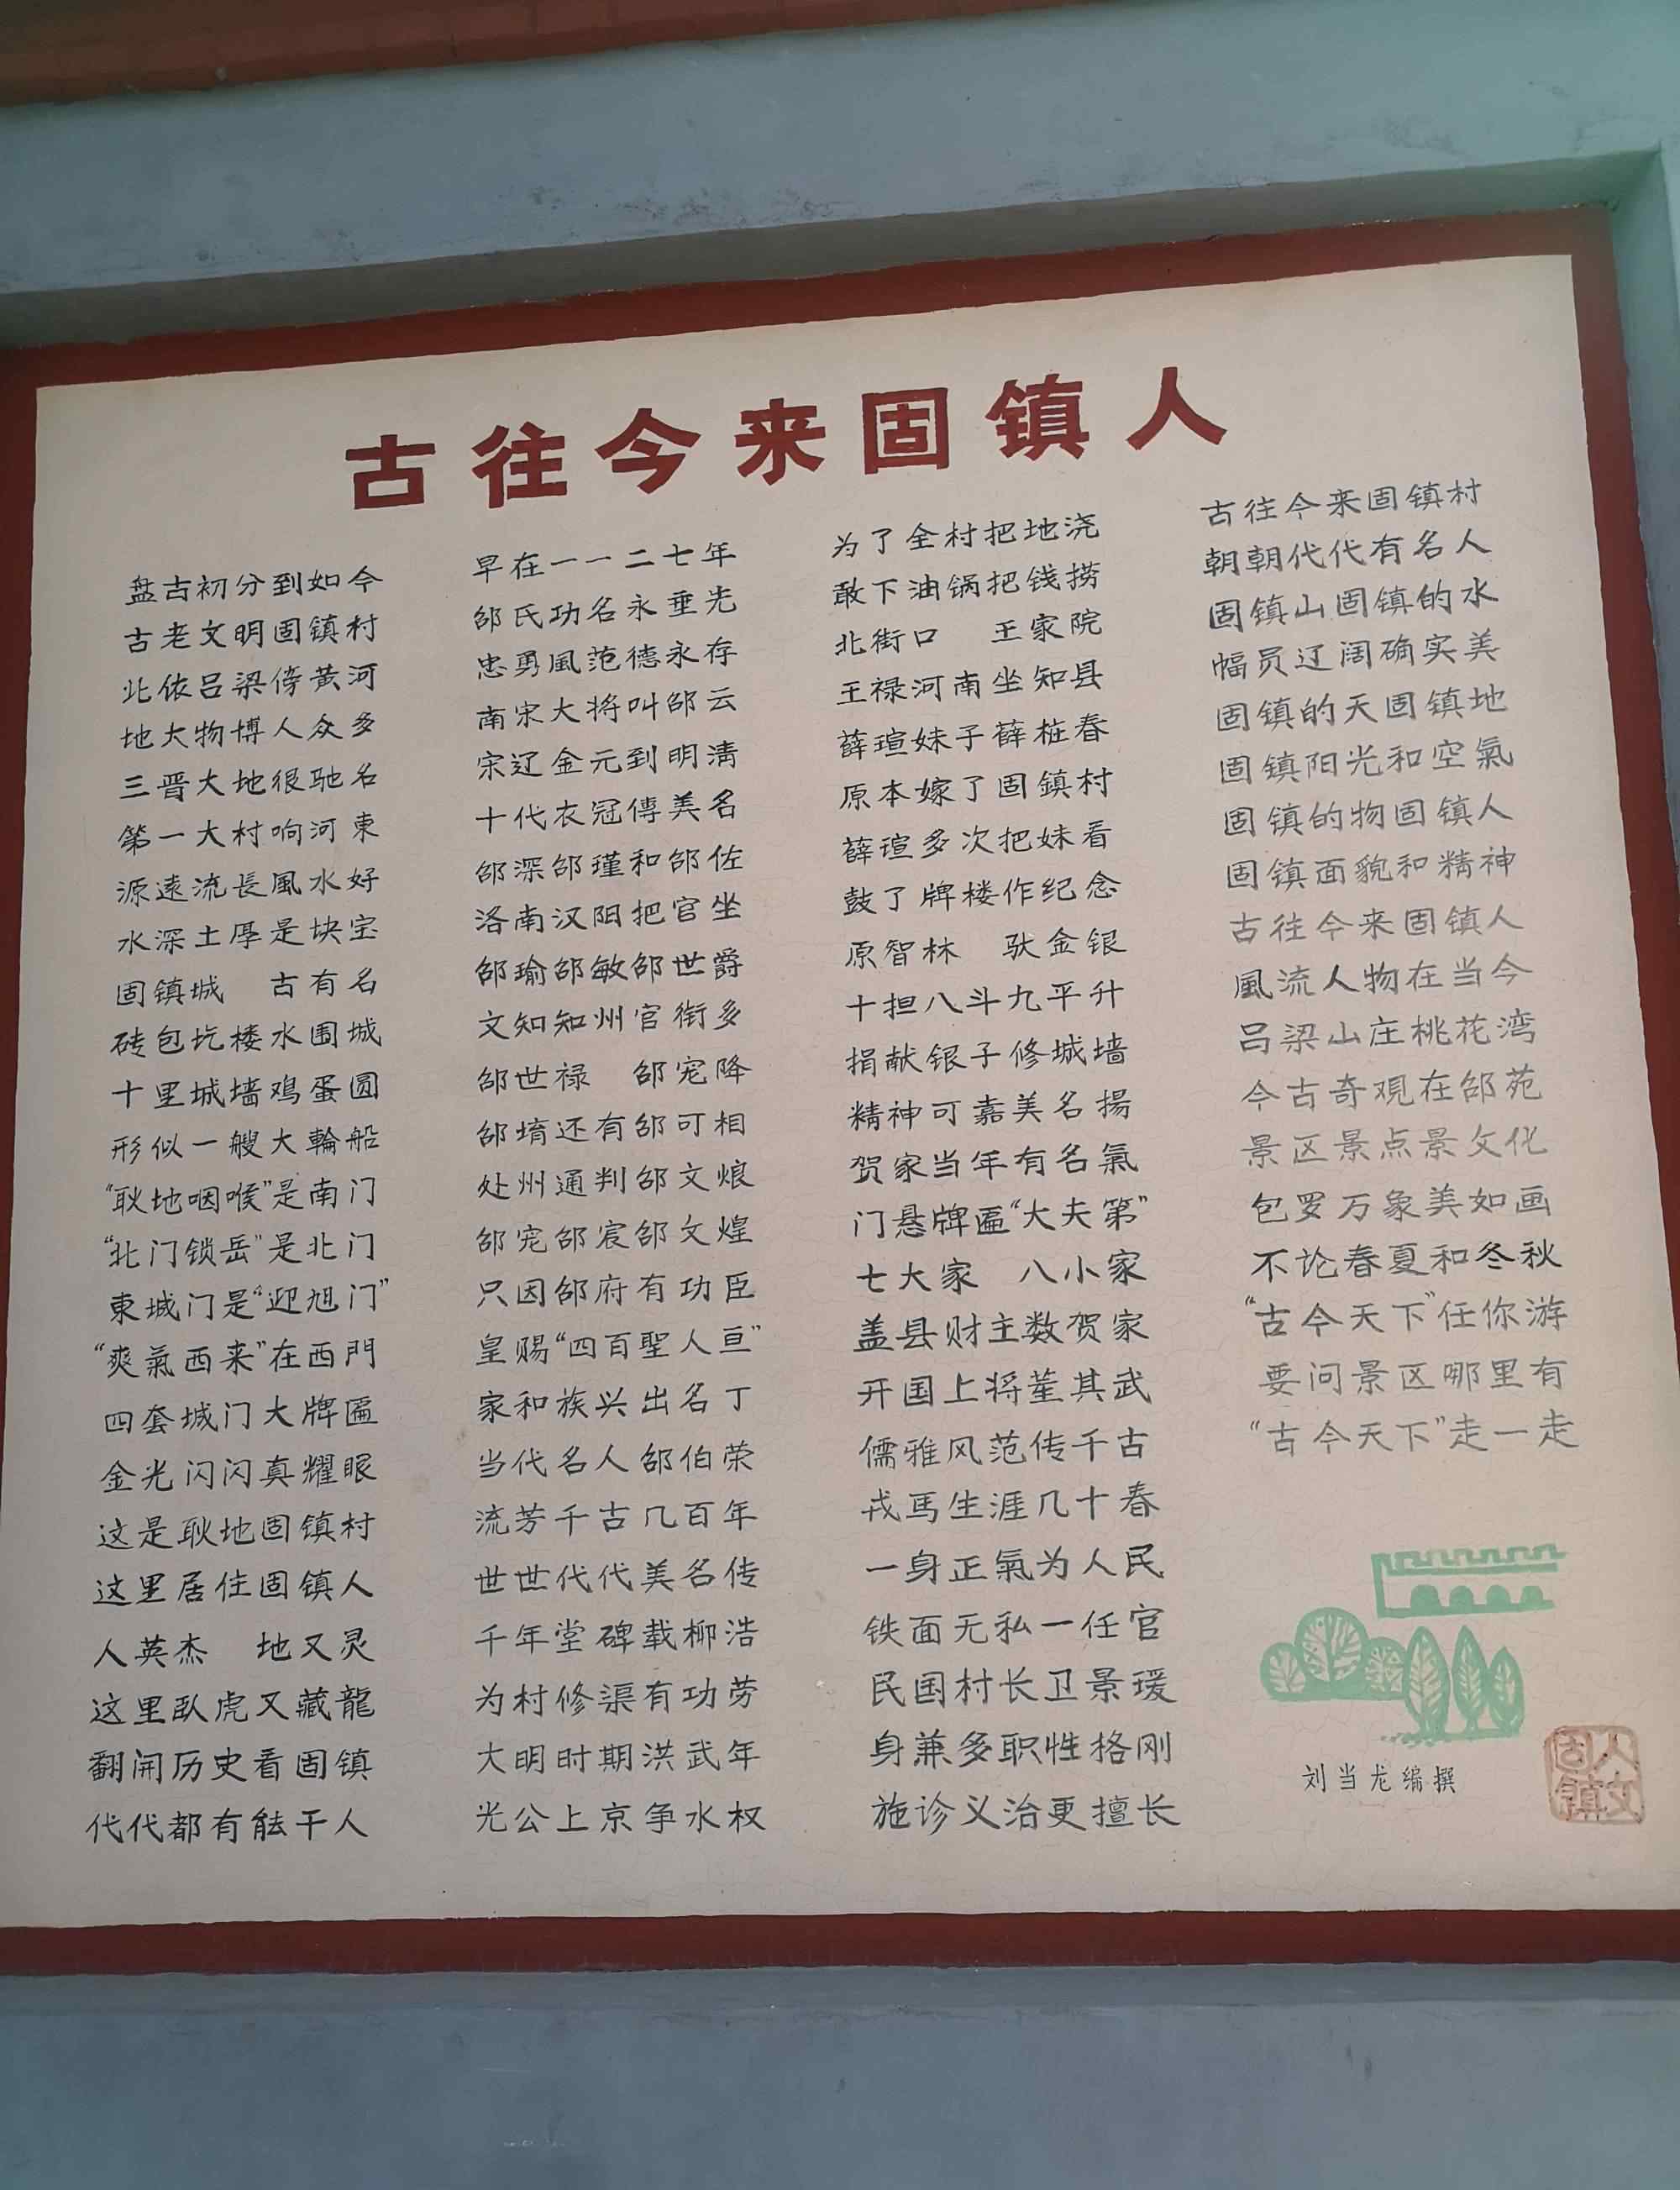 古往今来固镇人
盘古初分到如今
古老文明固镇村
北依吕梁傍黄河
地大物博人众多
三晋大地很驰名
第一大村响河東
源遠流長風水好
水深土厚是块宝
固镇城　古有名
砖包圪楼水围城
十里城墙鸡蛋圆
形似一艘大輪船
“耿地咽喉”是南门
“北门锁岳”是北门
東城门是“迎旭门”
“爽氣西来”在西門
四套城门大牌匾
金光闪闪真耀眼
这是耿地固镇村
这里居住固镇人
人英杰　地又灵
这里卧虎又藏龍
翻開历史看固镇
代代都有能干人
早在一一二七年
邰氏功名永垂光
忠勇風范德永存
南宋大将叫邰云
宋辽金元到明清
十代衣冠傳美名
邰深邰瑾和邰佐
洛南汉阳把官坐
邰瑜邰敏邰世爵
文知知州官衔多
邰世禄　邰宠降
邰堉还有邰可相
处州通判邰文烺
邰宠邰宸邰文煌
只因邰府有功臣
皇赐“四百聖人亘”
家和族兴出名丁
当代名人邰伯荣
流芳千古几百年
世世代代美名传
千年堂碑载柳浩
为村修渠有功劳
大明时期洪武年
光公上京争水权
为了全村把地浇
敢下油锅把钱捞
北街口　王家院
王禄河南坐知县
薛瑄妹子薛桩春
原本嫁了固鎮村
薛瑄多次把妹看
鼓了牌楼作纪念
原智林　驮金银
十担八斗九平升
捐献银子修城墙
精神可嘉美名揚
贺家当年有名氣
门悬牌匾“大夫第”
七大家　八小家
盖县财主数贺家
开国上将董其武
儒雅风范传千古
戎馬生涯几十春
一身正氣为人民
铁面无私一任官
民国村长卫景瑗
身兼多职性格刚
施诊义治更擅长
古往今来固镇村
朝朝代代有名人
固镇山固镇的水
幅员辽阔确实美
固镇的天固镇地
固镇阳光和空氣
固镇的物固镇人
固镇面貌和精神
古往今来固镇人
風流人物在当今
吕梁山庄桃花湾
今古奇观在邰苑
景区景点景文化
包罗万象美如画
不论春夏和冬秋
“古今天下”任你游
要问景区哪里有
“古今天下”走一走
刘当龙编撰
固镇人文